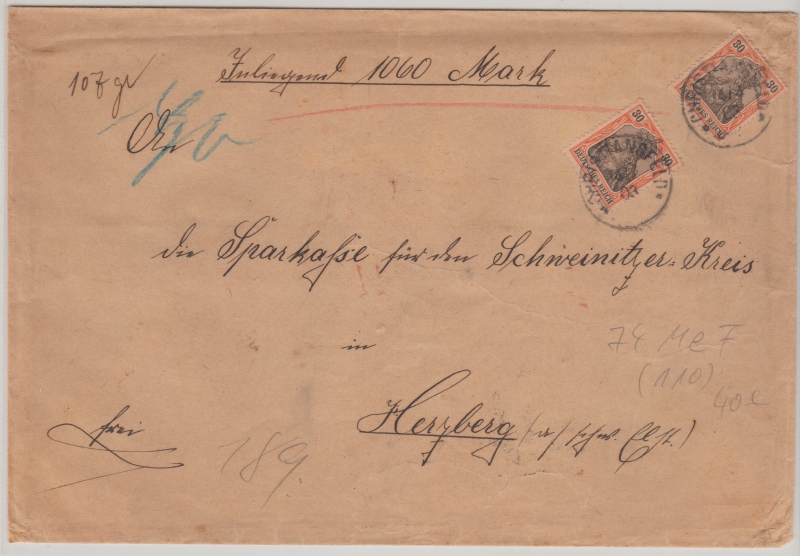 Inliegend 1060 Mark
107 gr
An
30 30
DEUTSCHES REICH
30 30
DEUTSCHES REICH
die Sparkasse für den Schweinitzer-Kreis
in
Herzberg (a/schw. Elst.)
frei
189.
74 MeF
(110)
40€